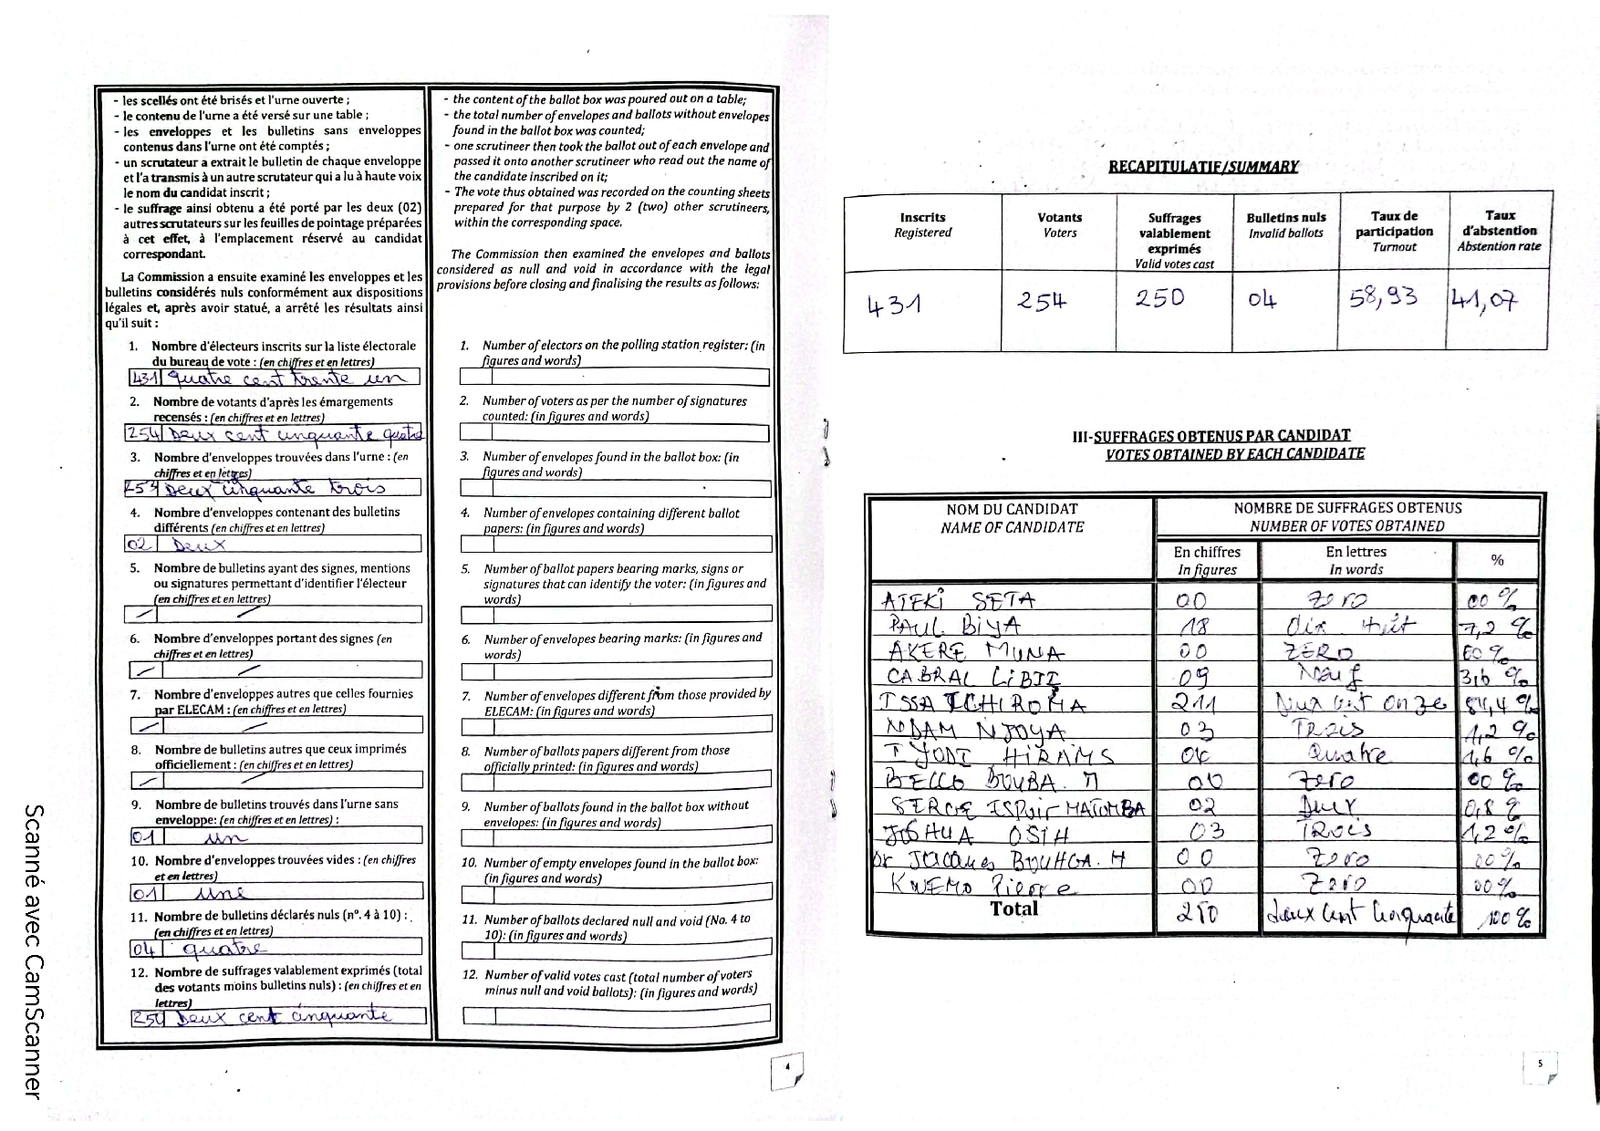 - les scellés ont été brisés et l'urne ouverte ;
- le contenu de l'urne a été versé sur une table ;
- les enveloppes et les bulletins sans enveloppes
contenus dans l'urne ont été comptés ;
- un scrutateur a extrait le bulletin de chaque enveloppe
et l'a transmis à un autre scrutateur qui a lu à haute voix
le nom du candidat inscrit ;
- le suffrage ainsi obtenu a été porté par les deux (02)
autres scrutateurs sur les feuilles de pointage préparées
à cet effet, à l'emplacement réservé au candidat
correspondant.
La Commission a ensuite examiné les enveloppes et les
bulletins considérés nuls conformément aux dispositions
légales et, après avoir statué, a arrêté les résultats ainsi
qu'il suit :
1. Nombre d'électeurs inscrits sur la liste électorale
du bureau de vote : (en chiffres et en lettres)
431 quatre cent trente un
2. Nombre de votants d'après les émargements
recensés : (en chiffres et en lettres)
254 Deux cent cinquante quatre
3. Nombre d'enveloppes trouvées dans l'urne : (en
chiffres et en lettres)
Deux cinquante trois
4. Nombre d'enveloppes contenant des bulletins
différents (en chiffres et en lettres)
02 Deux
5. Nombre de bulletins ayant des signes, mentions
ou signatures permettant d'identifier l'électeur
(en chiffres et en lettres)
/ /
6. Nombre d'enveloppes portant des signes (en
chiffres et en lettres)
/ /
7. Nombre d'enveloppes autres que celles fournies
par ELECAM : (en chiffres et en lettres)
/ /
8. Nombre de bulletins autres que ceux imprimés
officiellement : (en chiffres et en lettres)
/ /
9. Nombre de bulletins trouvés dans l'urne sans
enveloppe: (en chiffres et en lettres) :
01 un
10. Nombre d'enveloppes trouvées vides : (en chiffres
et en lettres)
01 une
11. Nombre de bulletins déclarés nuls (n°. 4 à 10) :
(en chiffres et en lettres)
04 quatre
12. Nombre de suffrages valablement exprimés (total
des votants moins bulletins nuls) : (en chiffres et en
lettres)
250 Deux cent cinquante
- the content of the ballot box was poured out on a table;
- the total number of envelopes and ballots without envelopes
found in the ballot box was counted;
- one scrutineer then took the ballot out of each envelope and
passed it onto another scrutineer who read out the name of
the candidate inscribed on it;
- The vote thus obtained was recorded on the counting sheets
prepared for that purpose by 2 (two) other scrutineers,
within the corresponding space.
The Commission then examined the envelopes and ballots
considered as null and void in accordance with the legal
provisions before closing and finalising the results as follows:
1. Number of electors on the polling station register: (in
figures and words)
2. Number of voters as per the number of signatures
counted: (in figures and words)
3. Number of envelopes found in the ballot box: (in
figures and words)
4. Number of envelopes containing different ballot
papers: (in figures and words)
5. Number of ballot papers bearing marks, signs or
signatures that can identify the voter: (in figures and
words)
6. Number of envelopes bearing marks: (in figures and
words)
7. Number of envelopes different from those provided by
ELECAM: (in figures and words)
8. Number of ballots papers different from those
officially printed: (in figures and words)
9. Number of ballots found in the ballot box without
envelopes: (in figures and words)
10. Number of empty envelopes found in the ballot box:
(in figures and words)
11. Number of ballots declared null and void (No. 4 to
10): (in figures and words)
12. Number of valid votes cast (total number of voters
minus null and void ballots): (in figures and words)
4
Scanné avec CamScanner
RECAPITULATIF/SUMMARY
Inscrits Registered
Votants Voters
Suffrages valablement exprimés Valid votes cast
Bulletins nuls Invalid ballots
Taux de participation Turnout
Taux d'abstention Abstention rate
431 254 250 04 58,93 41,07
III-SUFFRAGES OBTENUS PAR CANDIDAT
VOTES OBTAINED BY EACH CANDIDATE
NOM DU CANDIDAT NOMBRE DE SUFFRAGES OBTENUS
NAME OF CANDIDATE NUMBER OF VOTES OBTAINED
En chiffres En lettres %
In figures In words
ATEKI SETA 00 Zero 00 %
PAUL BIYA 18 dix huit 7,2 %
AKERE MUNA 00 ZERO 00 %
CABRAL LIBII 09 Neuf 3,6 %
ISSA TCHIROMA 211 Deux cent onze 84,4 %
NDAM NJOYA 03 Trois 1,2 %
IYODI HIRAMS 04 Quatre 1,6 %
BELLO BOUBA. M 00 Zero 00 %
SERGE ESPOIR MATOMBA 02 Deux 0,8 %
JOSHUA OSIH 03 Trois 1,2 %
Dr Jacques BOUHGA. H 00 Zero 00 %
KWEMO Pierre 00 Zero 00 %
Total 250 deux cent cinquante 100 %
5